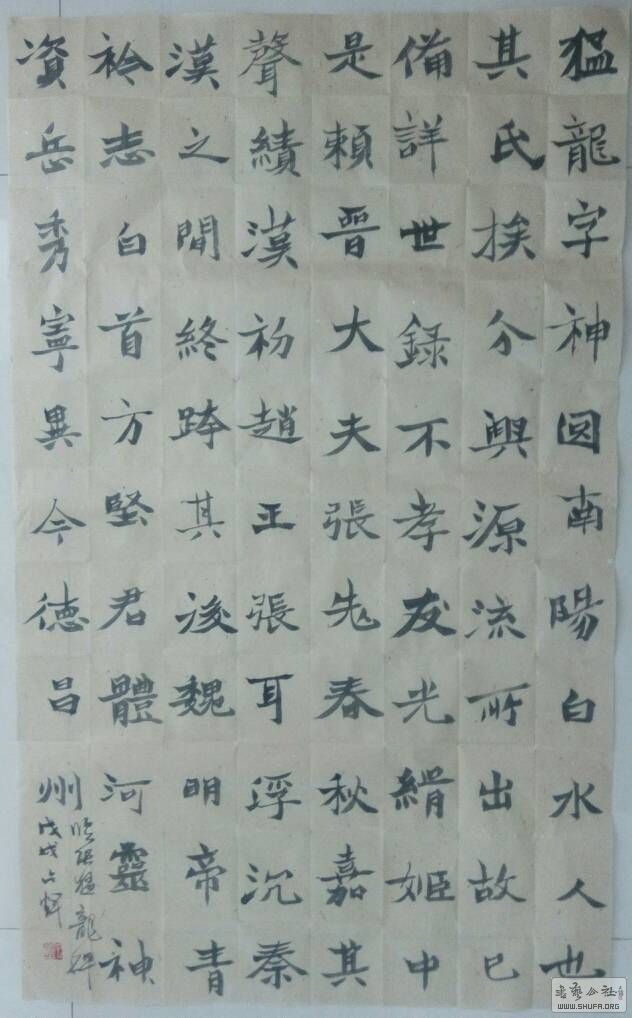 猛龍字神囧南陽白水人也
其氏挨分興源流所出故已
備詳世錄不孝友光緝姬中
是賴晋大夫張老春秋嘉其
聲績漢初趙王張耳浮沉秦
漢之間終跨其後魏明帝青
衿志白首方堅君體河靈神
資岳秀寧異今德昌州
臨張猛龍碑
戊戌
书艺公社
WWW.SHUFA.ORG